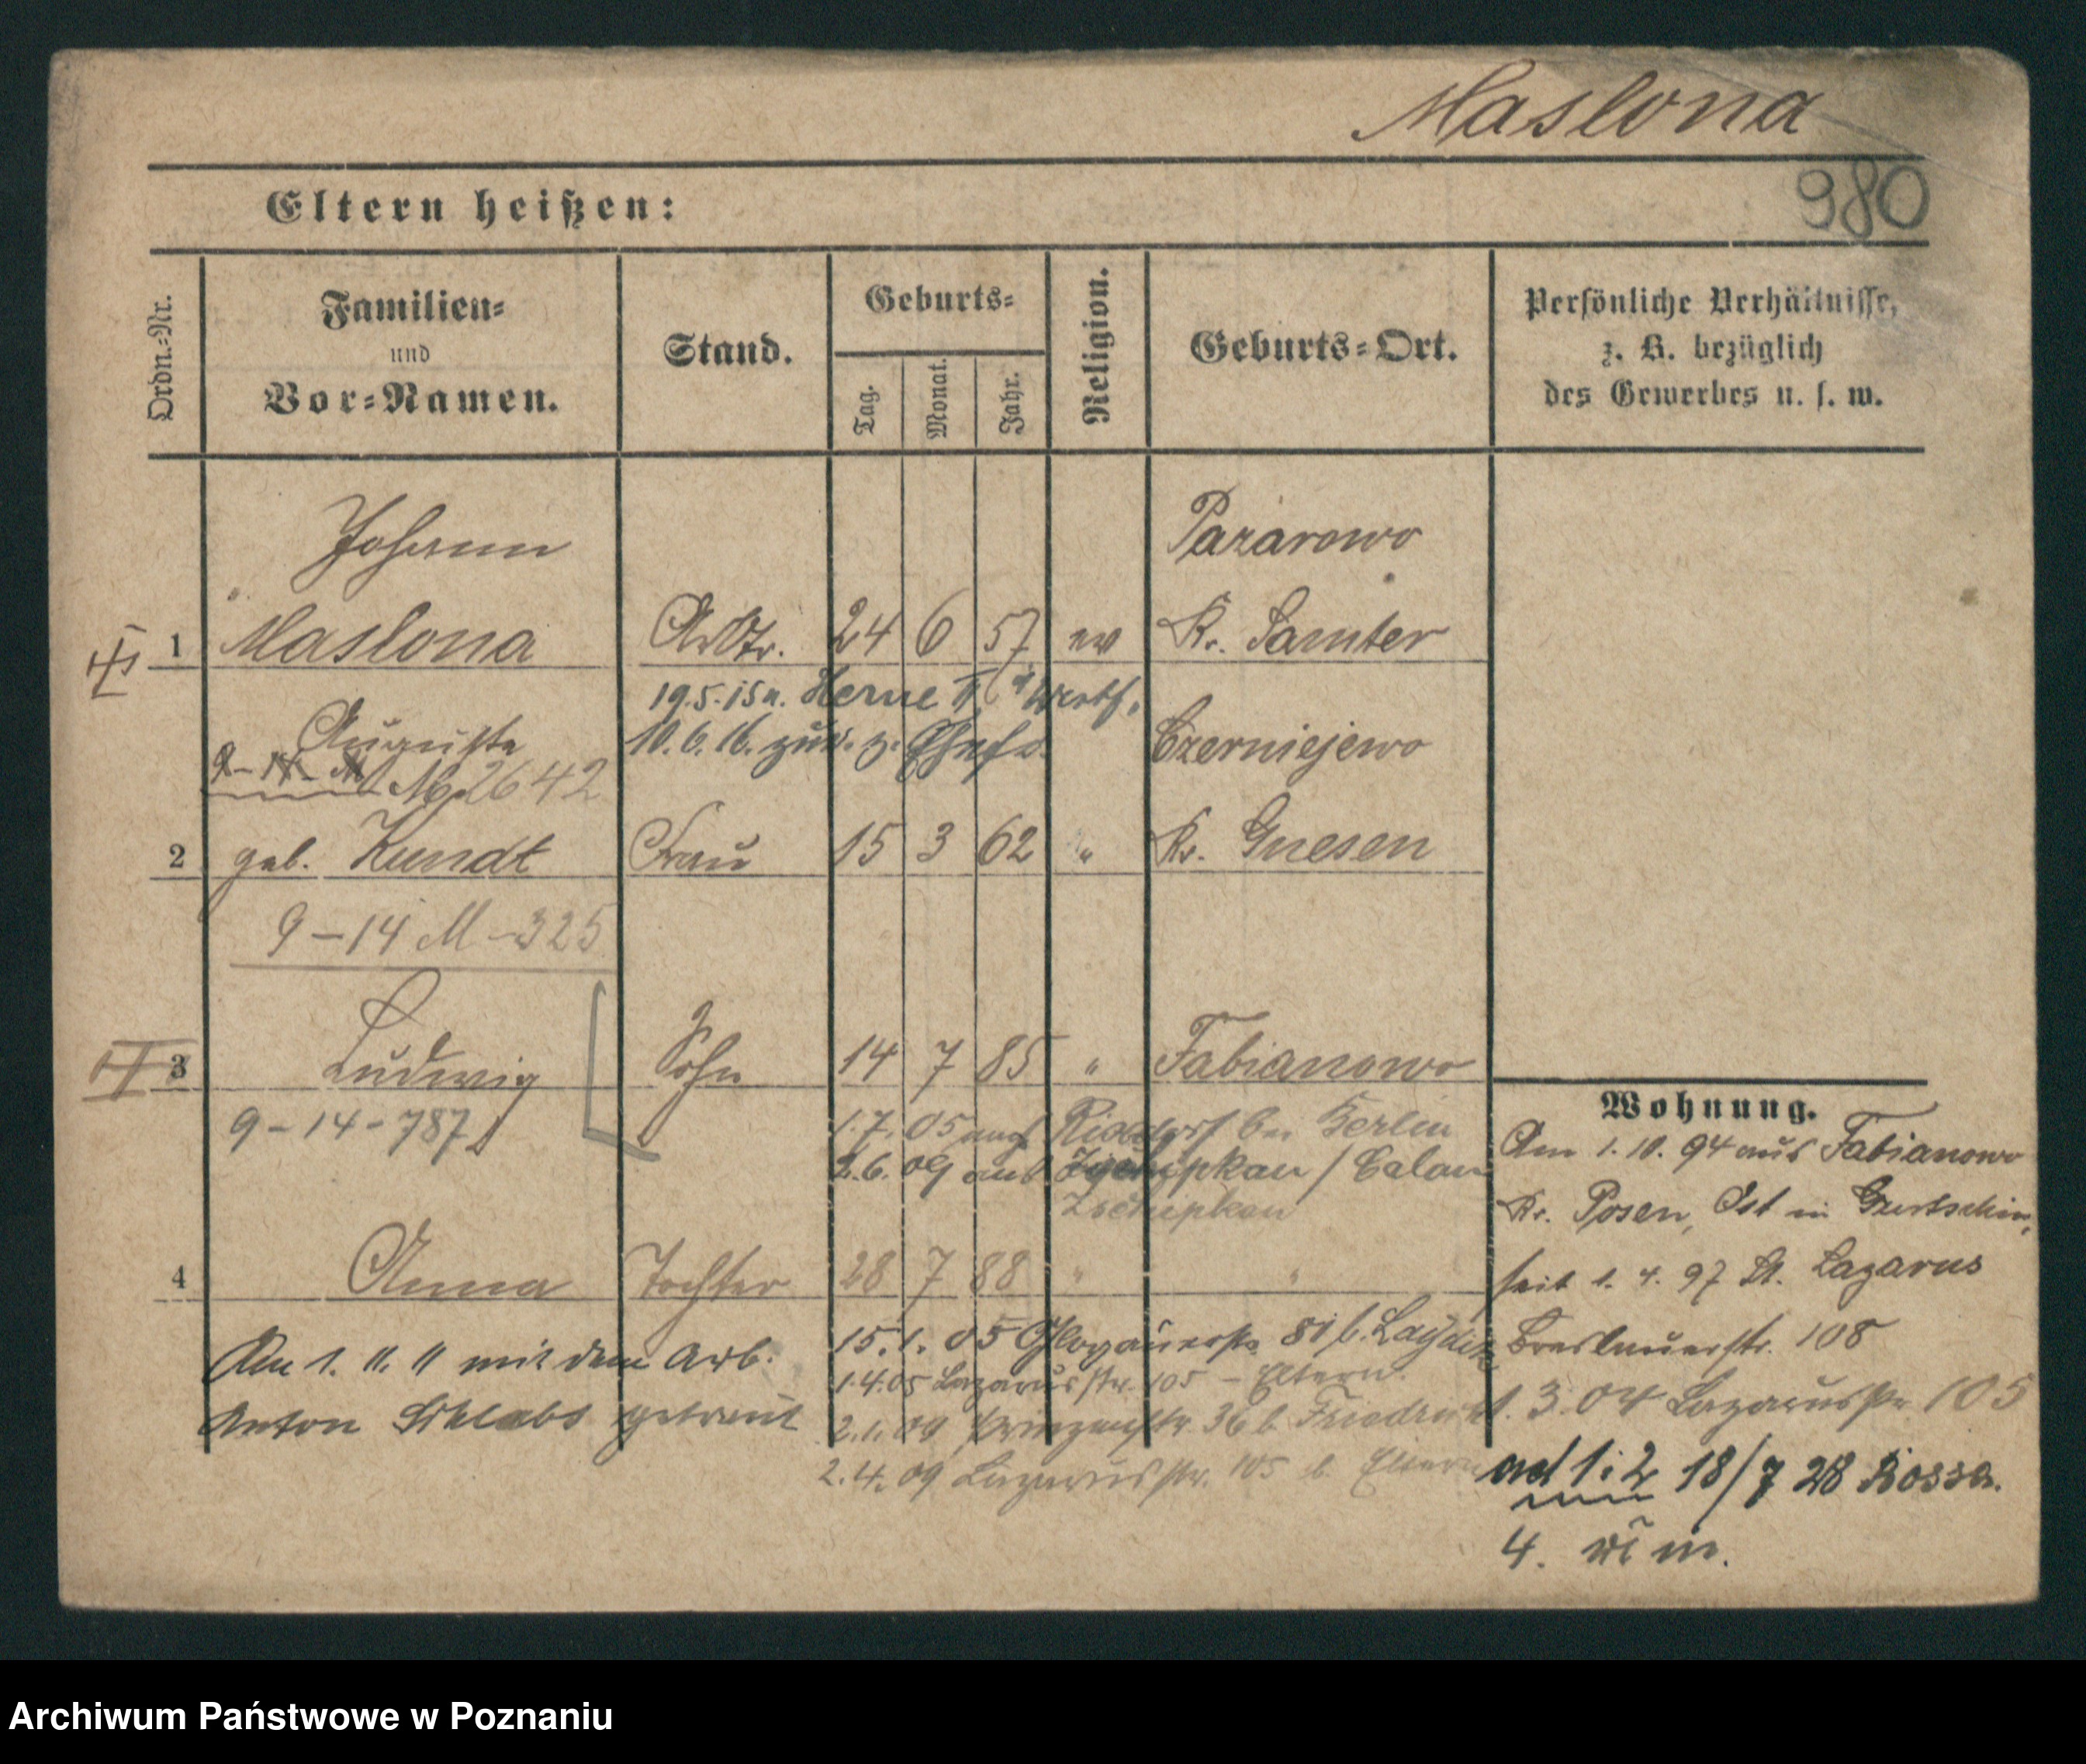 Maslona
980
Eltern heißen:
Ordn.-Nr.
Familien-
und
Vor-Namen.
Stand.
Geburts-
Tag.
Monat.
Jahr.
Religion.
Geburts-Ort.
Persönliche Verhältnisse,
z. B. bezüglich
des Gewerbes u. s. w.
Johann Pazarowo
1 Maslona 24 6 57 ev Kr. Samter
19.5.15 n. Herne i/Westf.
Auguste 10.6.16. zur. z. Czerniejewo
2642
2 geb. Kundt Frau 15 3 62 " Kr. Gnesen
9-14 M-325
3 Ludwig Sohn 14 7 85 " Fabianowo
9-14-787
1.7.05 nach Rixdorf bei Berlin
2.6.09 aus Zschipkau / Calau
Zschipkau
4 Anna Tochter 28 7 88 " "
Am 1. 11. 11 mit dem Arb.
Anton getraut
15.1.05 Glogauerstr. 81 b.
1.4.05 Lazarusstr. 105 - Eltern.
2.1.09 36 b.
2.4.09 Lazarusstr. 105 b. Eltern
Wohnung.
Am 1.10.94 aus Fabianowo
Kr. Posen, Ost in Gurtschin,
seit 1.4.97 St. Lazarus
Breslauerstr. 108
1.3.04 Lazarusstr. 105
ad 1: 2 18/7 28
4.
Archiwum Państwowe w Poznaniu